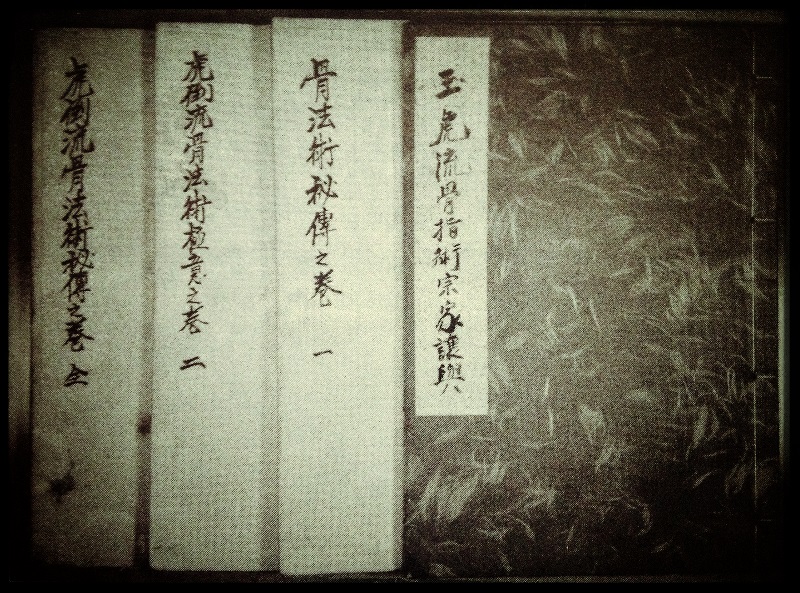 玉虎流骨指術宗家譲與
骨法術秘傳之巻 一
虎倒流骨法術極意之巻 二
虎倒流骨法術秘傳之巻 全